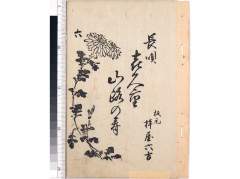 長唄
喜久重
山路の寿
板元
杵屋六吉
六